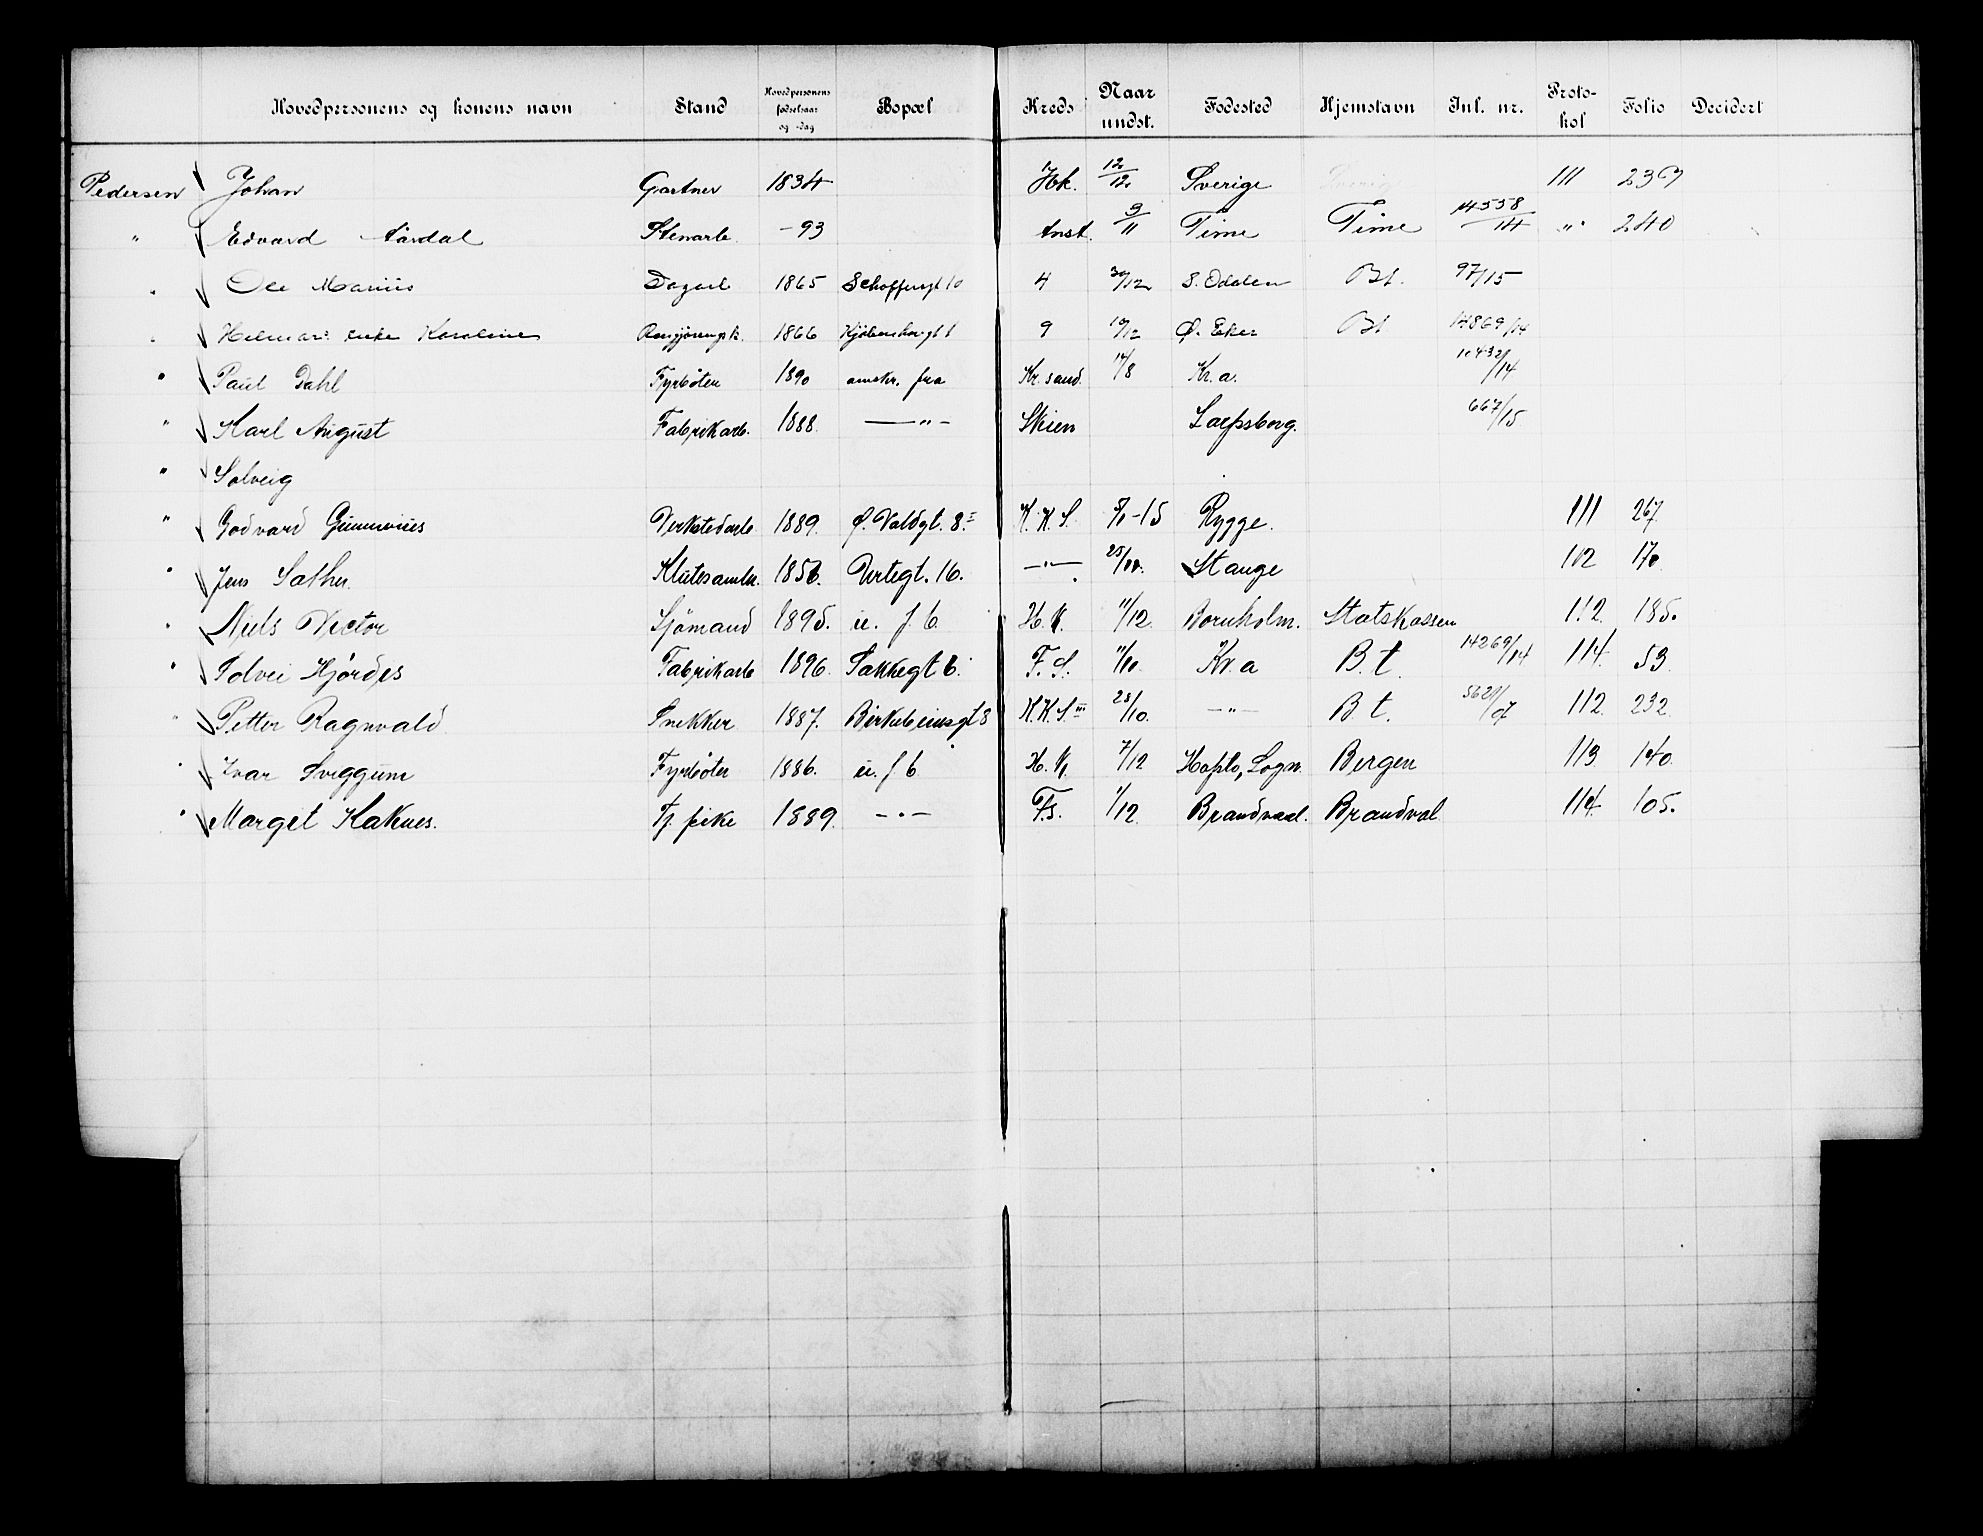 Hovedpersonens og konens navn Stand Hovedpersonens fødselsaar og -dag Bopæl Kreds Naar undst. Fødested Hjemstavn Inl. nr. Protokol Folio Decidert
Pedersen Johan Gartner 1834 Hk. 12/12. Sverige 111 239
" Edvard Aardal Stenarb. -93 Anst. 3/11 Time Time 14558/14 " 240
" Ole Marius Dagarb 1865 Schoffensgt 10 4 30/12 S. Odalen Bt. 97/15
" Helmar enke Karoline Rengjøringsk. 1866 9 10/12 Ø. Eker Bt 14869/14
" Paul Dahl Fyrböter 1890 omskr. fra Kr. sand. 14/8 Kr.a. 10432/14
" Karl August Fabrikarb. 1888 —"— Skien Sarpsborg. 667/15
" Solveig
" Godvard Gunnerius Verkstedarb. 1889. Ø. Voldgt. 8. K.K.S. -15 Rygge. 111 267
" Jens Sather. Klutesamler. 1856. Vertegt. 16. —"— 25/11. Stange 112 170
" Niels Vector Sjömand 1895. u. f b H.K. 11/12. Bornholm. Statskassen 112. 185.
" Solvei Hjördis Fabrikarb 1896. Sakkegt 6. F.S. 11/10. Kr.a B.t. 14269/14 114. 59.
" Petter Ragnvald Snekker 1887. Birkebeinergt 8 K.K.S. 28/10. —"— B t. 5621/07 112. 232.
" Ivar Sviggum Fyrböter 1886. u. f b H.K. 7/12 Hafslo, Sogn. Bergen 113. 140.
" Marget Kaknes. Tj. pike 1889. —"— F.S. 1/12. Brandvaal. Brandval 114. 105.